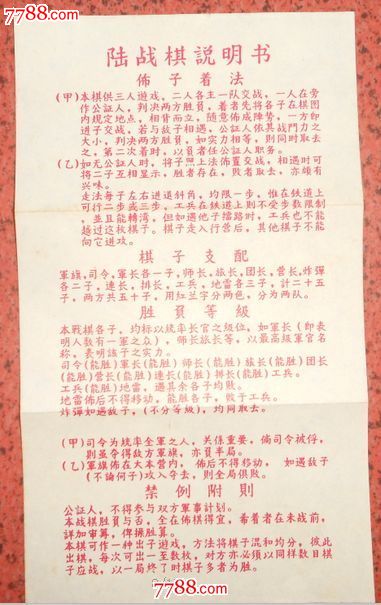 7788.com
陆战棋説明书
佈子着法
(甲)本棋供三人遊戏,二人各主一队交战,一人在旁
作公証人,判决两方胜負,着者先将各子在棋图
内規定地点,相背而立,随意佈成陣势,一方即
進子交战,若与敌子相遇,公証人依其战鬥力之
大小,判决两方胜負,如实力相等,則同时取去
之,第二次着时,以負者任公証人职务。
(乙)如无公証人时,将子照上法佈置交战,相遇时可
将二子互相显示,胜者存,败者取去,亦頗有
兴味。
走法每子左右进退斜角,均限一步,惟在鉄道上
可行二步或三步,工兵在鉄道上則不受步数限制
,並且能轉湾,但如遇他子擋路时,工兵也不能
越过这枚棋子。棋子走入行营后,其他棋子不能
向它进攻。
棋子支配
軍旗,司令,軍长各一子,师长,旅长,团长,营长,炸彈
各二子,連长,排长,工兵,地雷各三子,計二十五
子,两方共五十子,用红兰字分两色,分为两队。
胜負等級
本戰棋各子,均标以統率长官之级位,如軍长(即表
明人数有一軍之众),师长旅长等,以最高級軍官名
称,表明該子之实力。
司令(能胜)軍长(能胜)师长(能胜)旅长(能胜)团长
(能胜)营长(能胜)連长(能胜)排长(能胜)工兵。
工兵(能胜)地雷,遇其余各子均敗。
地雷佈后不得移动,能胜各子,敗于工兵。
炸彈如遇敌子,(不分等級),均同取去。
(甲)司令为統率全軍之人,关係重要,倘司令被俘,
則並夺得敌方軍旗,亦負半局。
(乙)軍旗佈在大本营内,佈后不得移动,如遇敌子
(不論何子)攻入夺去,則全局俱敗。
禁例附則
公証人,不得参与双方軍事計划。
本战棋胜負与否,全在佈棋得宜,希着者在未战前,
詳加审筹,俾操胜算。
本棋可作一种出子游戏,方法将棋子混和均分,彼此
出棋,每次可出一至数枚,对方亦必须以同样数目棋
子应战,以一局終了时棋子多者为胜。
7788.com